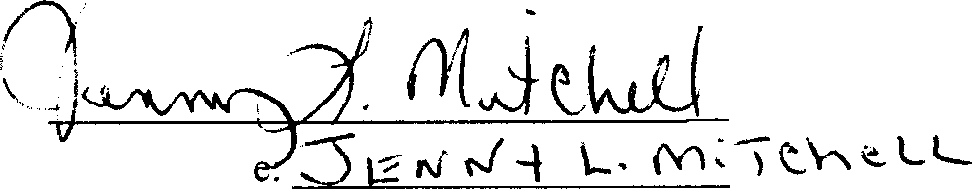 Jenny L. Mitchell
e: JENNY L. MITCHELL